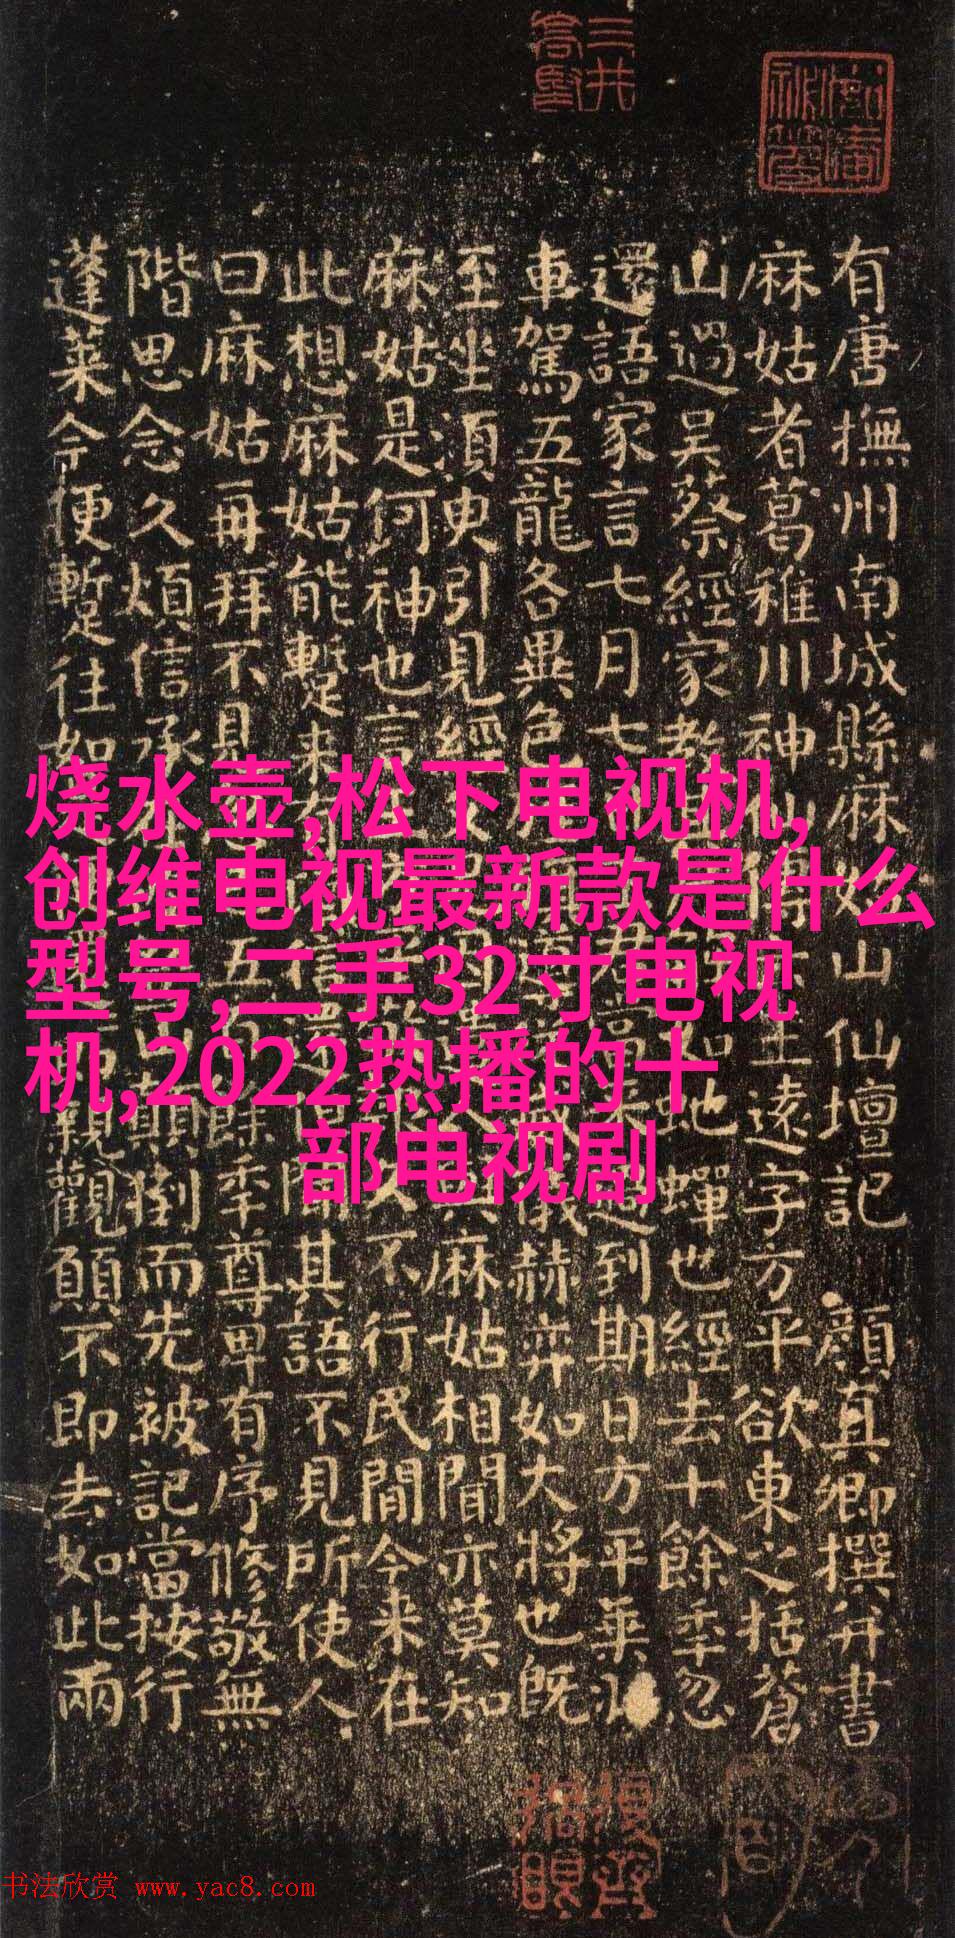 有唐撫州南城縣麻姑山仙壇記 顏真卿撰并書
麻姑者葛稚川神仙王遠字方平欲東之括蒼
山過吳蔡經家教如虵蟬也經去十餘秊忽
還語家言七月七到期日方平乗
車駕五龍各異色儀赫弈如大將也既
至坐須臾引見經麻姑相聞亦莫知
麻姑是何神也言久不行民間今来在
此想麻姑能蹔来信還聞其語不見所使人
曰麻姑再拜不見五餘秊尊卑有序修敬無
階思念久煩信承山顛倒而先被記當按行
蓬莱今便蹔往如親觀願不即去如此兩
烧水壶,松下电视机,
创维电视最新款是什么
型号,二手32寸电视
机,2022热播的十
部电视剧
书法欣赏 www.yac8.com